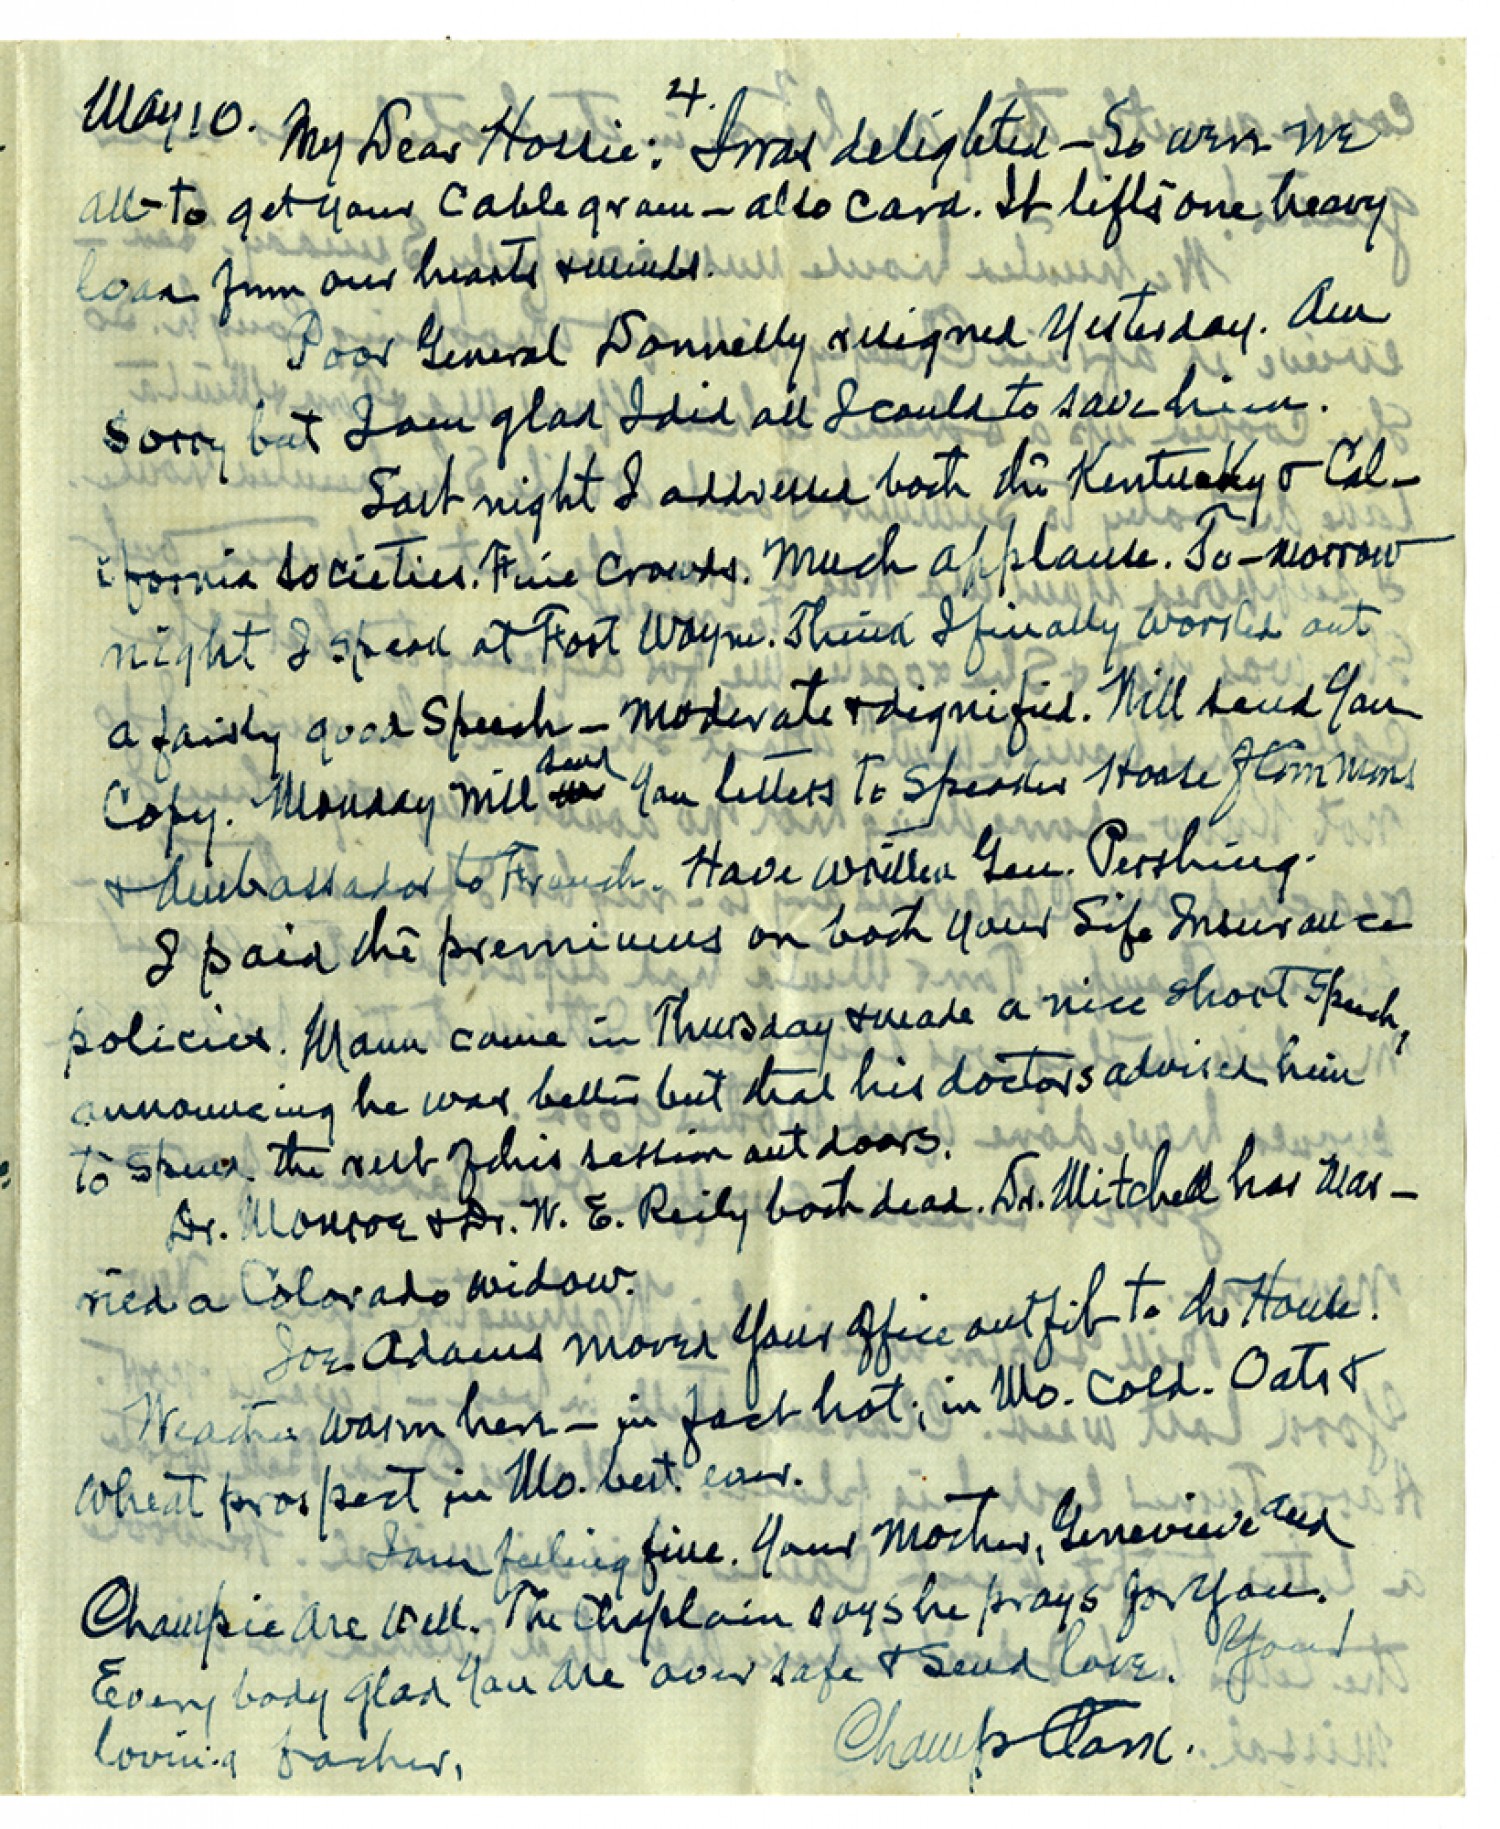 4.
May 10. My Dear Hossie: I was delighted – So were we
all – to get your Cablegram – also card. It lifts one heavy
load from our hearts & minds.
Poor General Donnelly resigned Yesterday. Am
sorry but I am glad I did all I could to save him.
Last night I addressed both the Kentucky & Cal-
ifornia societies. Fine crowds. Much applause. To-morrow
night I speak at Fort Wayne. Think I finally worked out
a fairly good Speech – moderate & dignified. Will send You
Copy. Monday will send You letters to Speaker House of Commons
& Ambassador to French. Have written Gen. Pershing.
I paid the premiums on both your Life Insurance
policies. Mann came in Thursday & made a nice short speech,
announcing he was better but that his doctors advised him
to spend the rest of this session outdoors.
Dr. Monroe & Dr. W. E. Reily both dead. Dr. Mitchell has mar-
ried a Colorado widow.
Joe Adams moved Your office outfit to the House.
Weather warm here – in fact hot; in Mo. cold. Oats &
wheat prospect in Mo. best ever.
I am feeling fine. Your Mother, Genevieve and
Champie are well. The Chaplain says he prays for You.
Every body glad You are over safe & send love. Your
loving father,
Champ Clark.